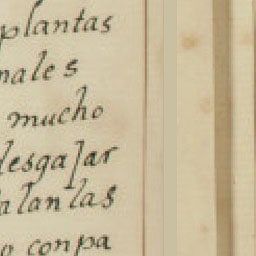 plantas
nales
mucho
desgajar
alan las
o conpa